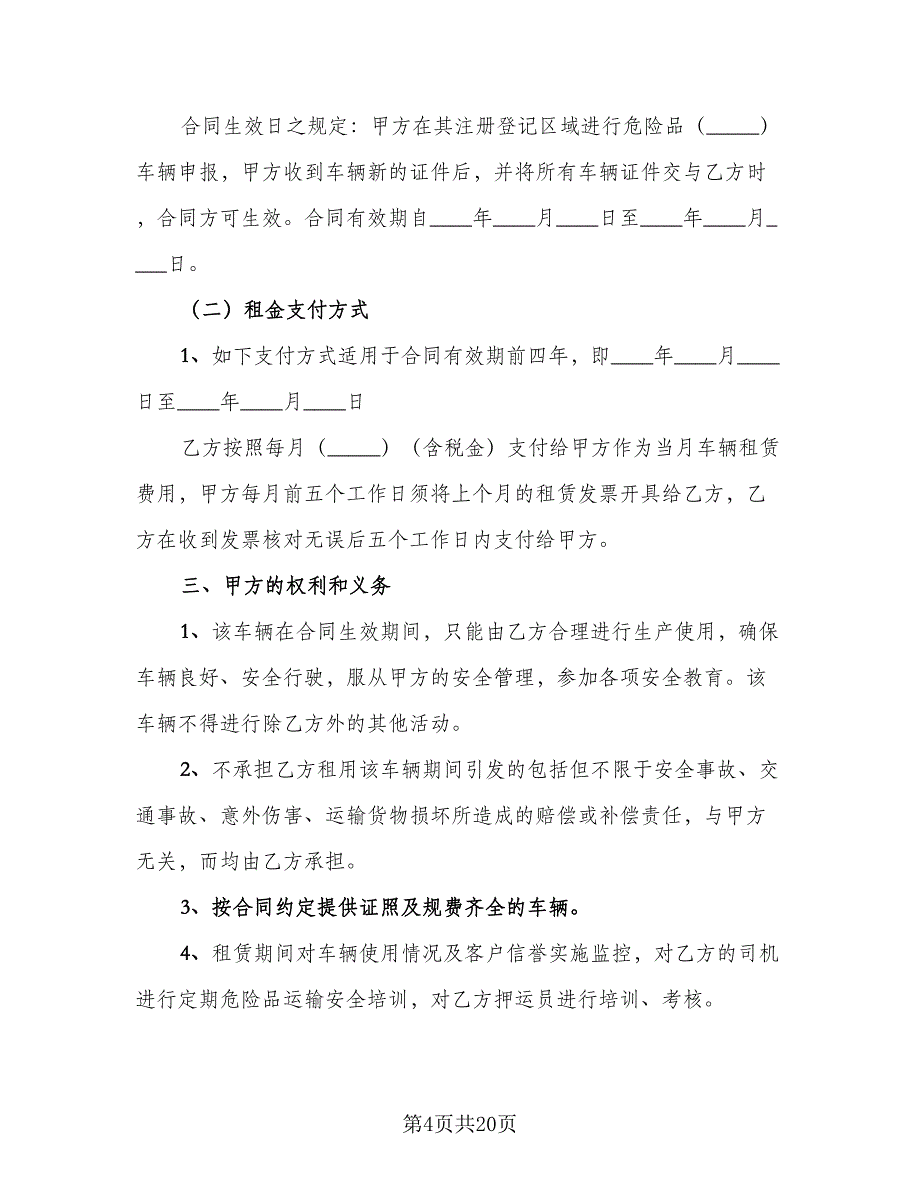 合同生效日之规定：甲方在其注册登记区域进行危险品（_____）
车辆申报，甲方收到车辆新的证件后，并将所有车辆证件交与乙方时
，合同方可生效。合同有效期自____年____月____日至____年____月_
___日。
（二）租金支付方式
1、如下支付方式适用于合同有效期前四年，即____年____月____
日至____年____月____日
乙方按照每月（_____）（含税金）支付给甲方作为当月车辆租赁
费用，甲方每月前五个工作日须将上个月的租赁发票开具给乙方，乙
方在收到发票核对无误后五个工作日内支付给甲方。
三、甲方的权利和义务
1、该车辆在合同生效期间，只能由乙方合理进行生产使用，确保
车辆良好、安全行驶，服从甲方的安全管理，参加各项安全教育。该
车辆不得进行除乙方外的其他活动。
2、不承担乙方租用该车辆期间引发的包括但不限于安全事故、交
通事故、意外伤害、运输货物损坏所造成的赔偿或补偿责任，与甲方
无关，而均由乙方承担。
3、按合同约定提供证照及规费齐全的车辆。
4、租赁期间对车辆使用情况及客户信誉实施监控，对乙方的司机
进行定期危险品运输安全培训，对乙方押运员进行培训、考核。
第4页共20页